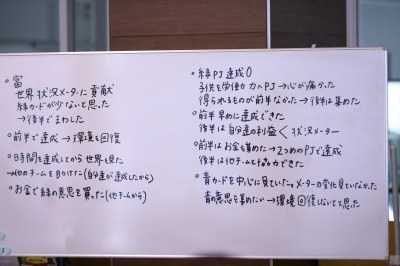 ○富
世界状況メーターに貢献
緑カードが少ないと思った
→後半でまわした
○前半で達成→環境を回復
○日時間を達成してから世界を見た
→他のチームを助けた(自分達が達成したから)
○お金で緑の意思を買った(他チームから)
○緑PJ達成0
子供を労働力へPJ→心が痛かった
得られるものが前半なかった→後半は集めた
○前半早めに達成できた
後半は自分達の利益<状況メーター
○前半はお金を集めた→2つめのPJで達成
後半は他チームとも協力できた
○青カードを中心に見ていた。メーターの変化見ていなかった
青の意思を集めたい→環境回復しないとと思った